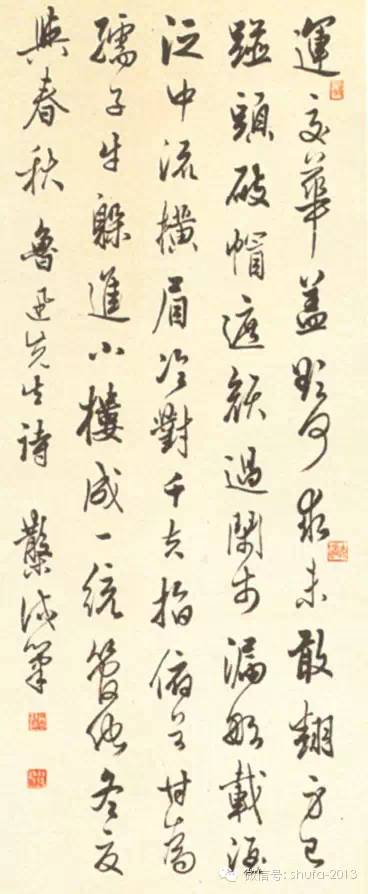 運交華蓋欲何求未敢翻身已
碰頭破帽遮顏過鬧市漏船載酒
泛中流橫眉冷對千夫指俯首甘為
孺子牛躲進小樓成一統管他冬夏
與春秋 魯迅先生詩 筆
微信号: shufa-2013